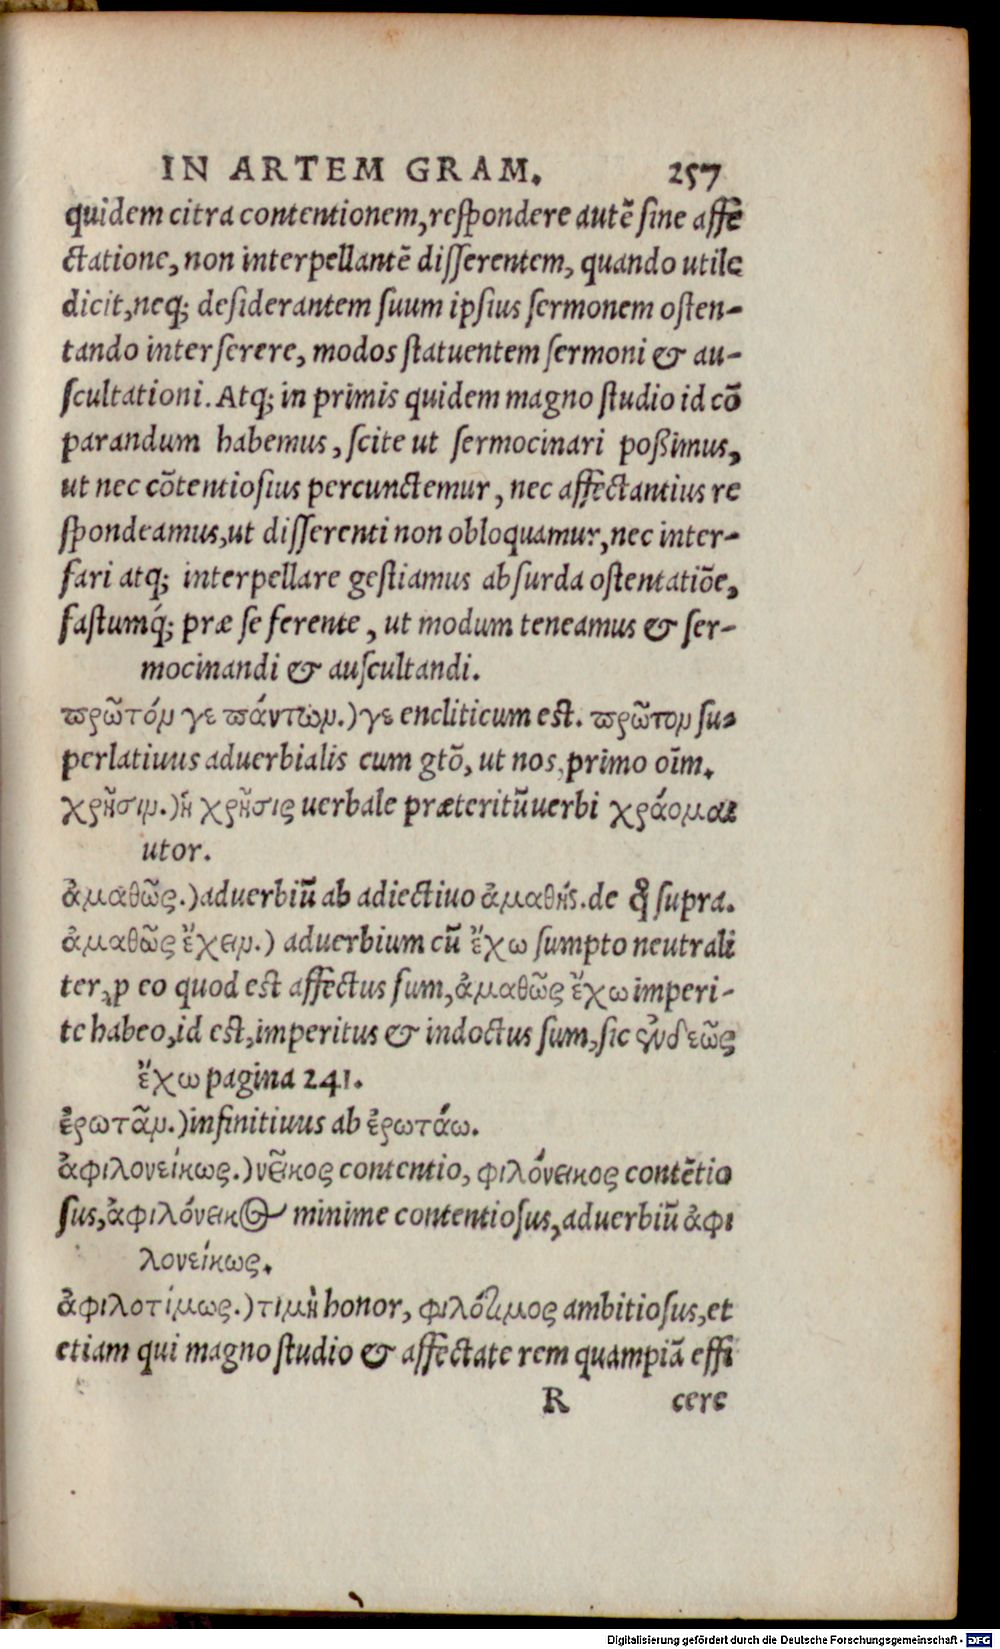 IN ARTEM GRAM. 257
quidem citra contentionem, respondere autē sine affe
ctatione, non interpellantē disserentem, quando utile
dicit, neq; desiderantem suum ipsius sermonem osten-
tando interserere, modos statuentem sermoni & au-
scultationi. Atq; in primis quidem magno studio id cō
parandum habemus, scite ut sermocinari poßimus,
ut nec cōtentiosius percunctemur, nec affectantius re
spondeamus, ut disserenti non obloquamur, nec inter-
fari atq; interpellare gestiamus absurda ostentatiōe,
fastumq́; præ se ferente, ut modum teneamus & ser-
mocinandi & auscultandi.
πρῶτόν γε πάντων.) γε encliticum est. πρῶτον su-
perlatiuus aduerbialis cum gtō, ut nos, primo oīm.
χρῆσιν.) ἡ χρῆσις uerbale præteritū uerbi χράομαι
utor.
ἀμαθῶς.) aduerbiū ab adiectiuo ἀμαθής. de q̃ supra.
ἀμαθῶς ἔχειν.) aduerbium cū ἔχω sumpto neutrali
ter, ꝓ eo quod est affectus sum, ἀμαθῶς ἔχω imperi-
te habeo, id est, imperitus & indoctus sum, sic ἐνδεῶς
ἔχω pagina 241.
ἐρωτᾶν.) infinitiuus ab ἐρωτάω.
ἀφιλονείκως.) νεῖκος contentio, φιλόνεικος contētio
sus, ἀφιλόνεικος minime contentiosus, aduerbiū ἀφι
λονείκως.
ἀφιλοτίμως.) τιμὴ honor, φιλότιμος ambitiosus, et
etiam qui magno studio & affectate rem quampiā effi
R cere
Digitalisierung gefördert durch die Deutsche Forschungsgemeinschaft - DFG